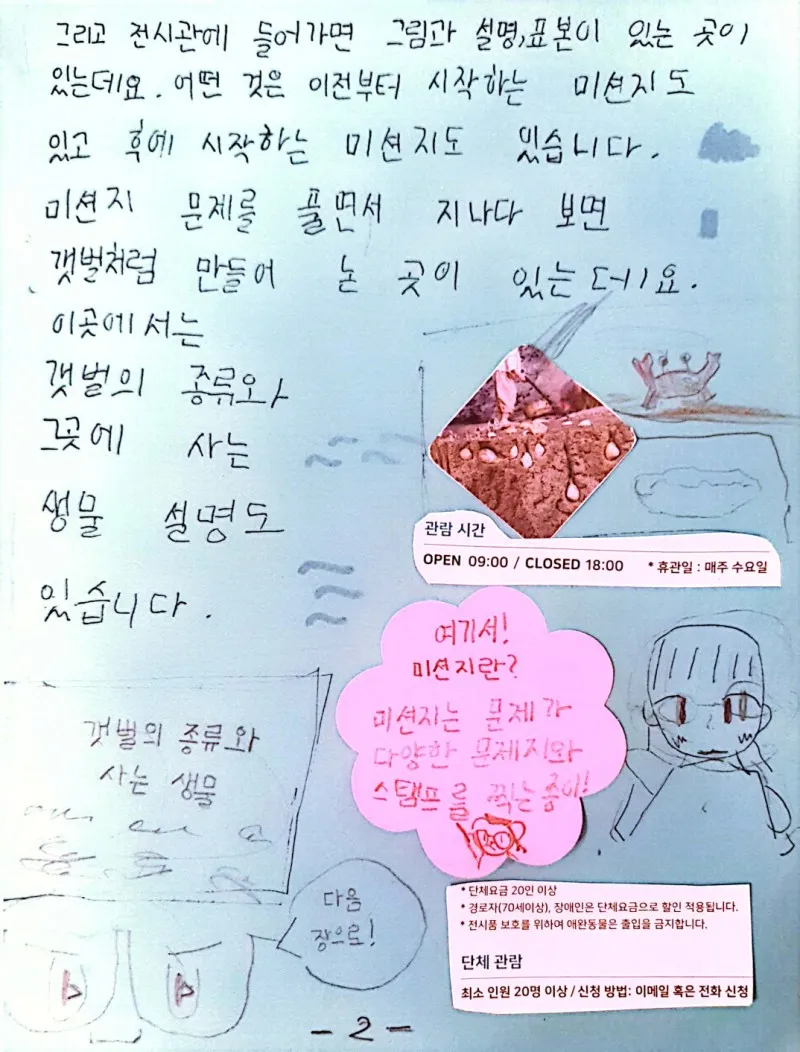 그리고 전시관에 들어가면 그림과 설명,표본이 있는 곳이
있는데요. 어떤 것은 이전부터 시작하는 미션지도
있고 후에 시작하는 미션지도 있습니다.
미션지 문제를 풀면서 지나다 보면
갯벌처럼 만들어 논 곳이 있는데요.
이곳에서는
갯벌의 종류와
그곳에 사는
생물 설명도
있습니다.
관람 시간
OPEN 09:00 / CLOSED 18:00 * 휴관일 : 매주 수요일
여기서!
미션지란?
미션지는 문제가
다양한 문제지와
스탬프를 찍는 종이!
갯벌의 종류와
사는 생물
다음
장으로!
* 단체요금 20인 이상
* 경로자(70세이상), 장애인은 단체요금으로 할인 적용됩니다.
* 전시품 보호를 위하여 애완동물은 출입을 금지합니다.
단체 관람
최소 인원 20명 이상 / 신청 방법: 이메일 혹은 전화 신청
- 2 -